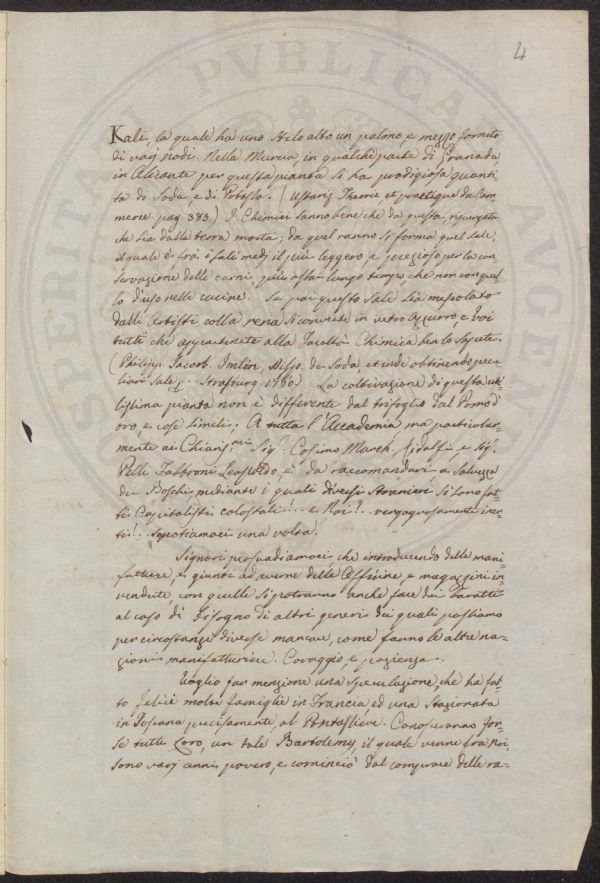 4
Kali, la quale ha uno stelo alto un palmo, e mezzo fornito
di varj nodi. Nella Murcia, in qualche parte di Granada
in Alicante per questa pianta si ha prodigiosa quanti
tà di Soda, e di Potassa. (Ustariz Theorie et prattique du Com
merce pag. 383.) I Chimici sanno bene che da questa, ripurgata
che sia dalla terra morta; da quel ranno si forma quel sale,
il quale è frà i sali medj il più leggero, e prezioso per la con
servazione delle carni, più assai lungo tempo, che non con quel
lo d'uso nelle cucine. Se poi questo Sale sia mescolato
dalli Artisti colla rena si converte in vetro azzurro, e Voi
tutti che appartenete alla facoltà Chimica ben lo sapete.
(Philipp. Jacob. Imlin, Diss. de Soda, et inde obtinendo pecu
liari Sale. Strasburg 1760) La coltivazione di questa uti
lissima pianta non è differente dal trifoglio dal Pomo d'
oro, e cose simili; A tutta l'Accademia, ma particolar
mente ai Chiariss.mi Sig.ri Cosimo March. Ridolfi e Sig.
Pelli Fabbroni Leopoldo è da raccomandarsi la salvezza
dei Boschi, mediante i quali diversi Stranieri si sono fat
ti Capitalisti colossali!... e Noi?.. vergognosamente iner
ti!.. Scuotiamoci una volta.
Signori persuadiamoci, che introducendo delle mani
fatture, e giunti ad averne delle Officine, e magazzini in
vendita con quelle si potranno anche fare dei baratti
al caso di bisogno di altri generi dei quali possiamo
per circostanze diverse mancare, come fanno le altre na=
zioni manifatturiere. Coraggio, e pazienza.
Voglio far menzione una speculazione, che ha fat
to felici molte famiglie in Francia, ed una Stazionata
in Toscana precisamente, al Pontassieve. Conosceranno for
se tutti Loro, un tale Bartolemy, il quale venne fra Noi,
sono varj anni povero, e cominciò dal comprare delle ra=